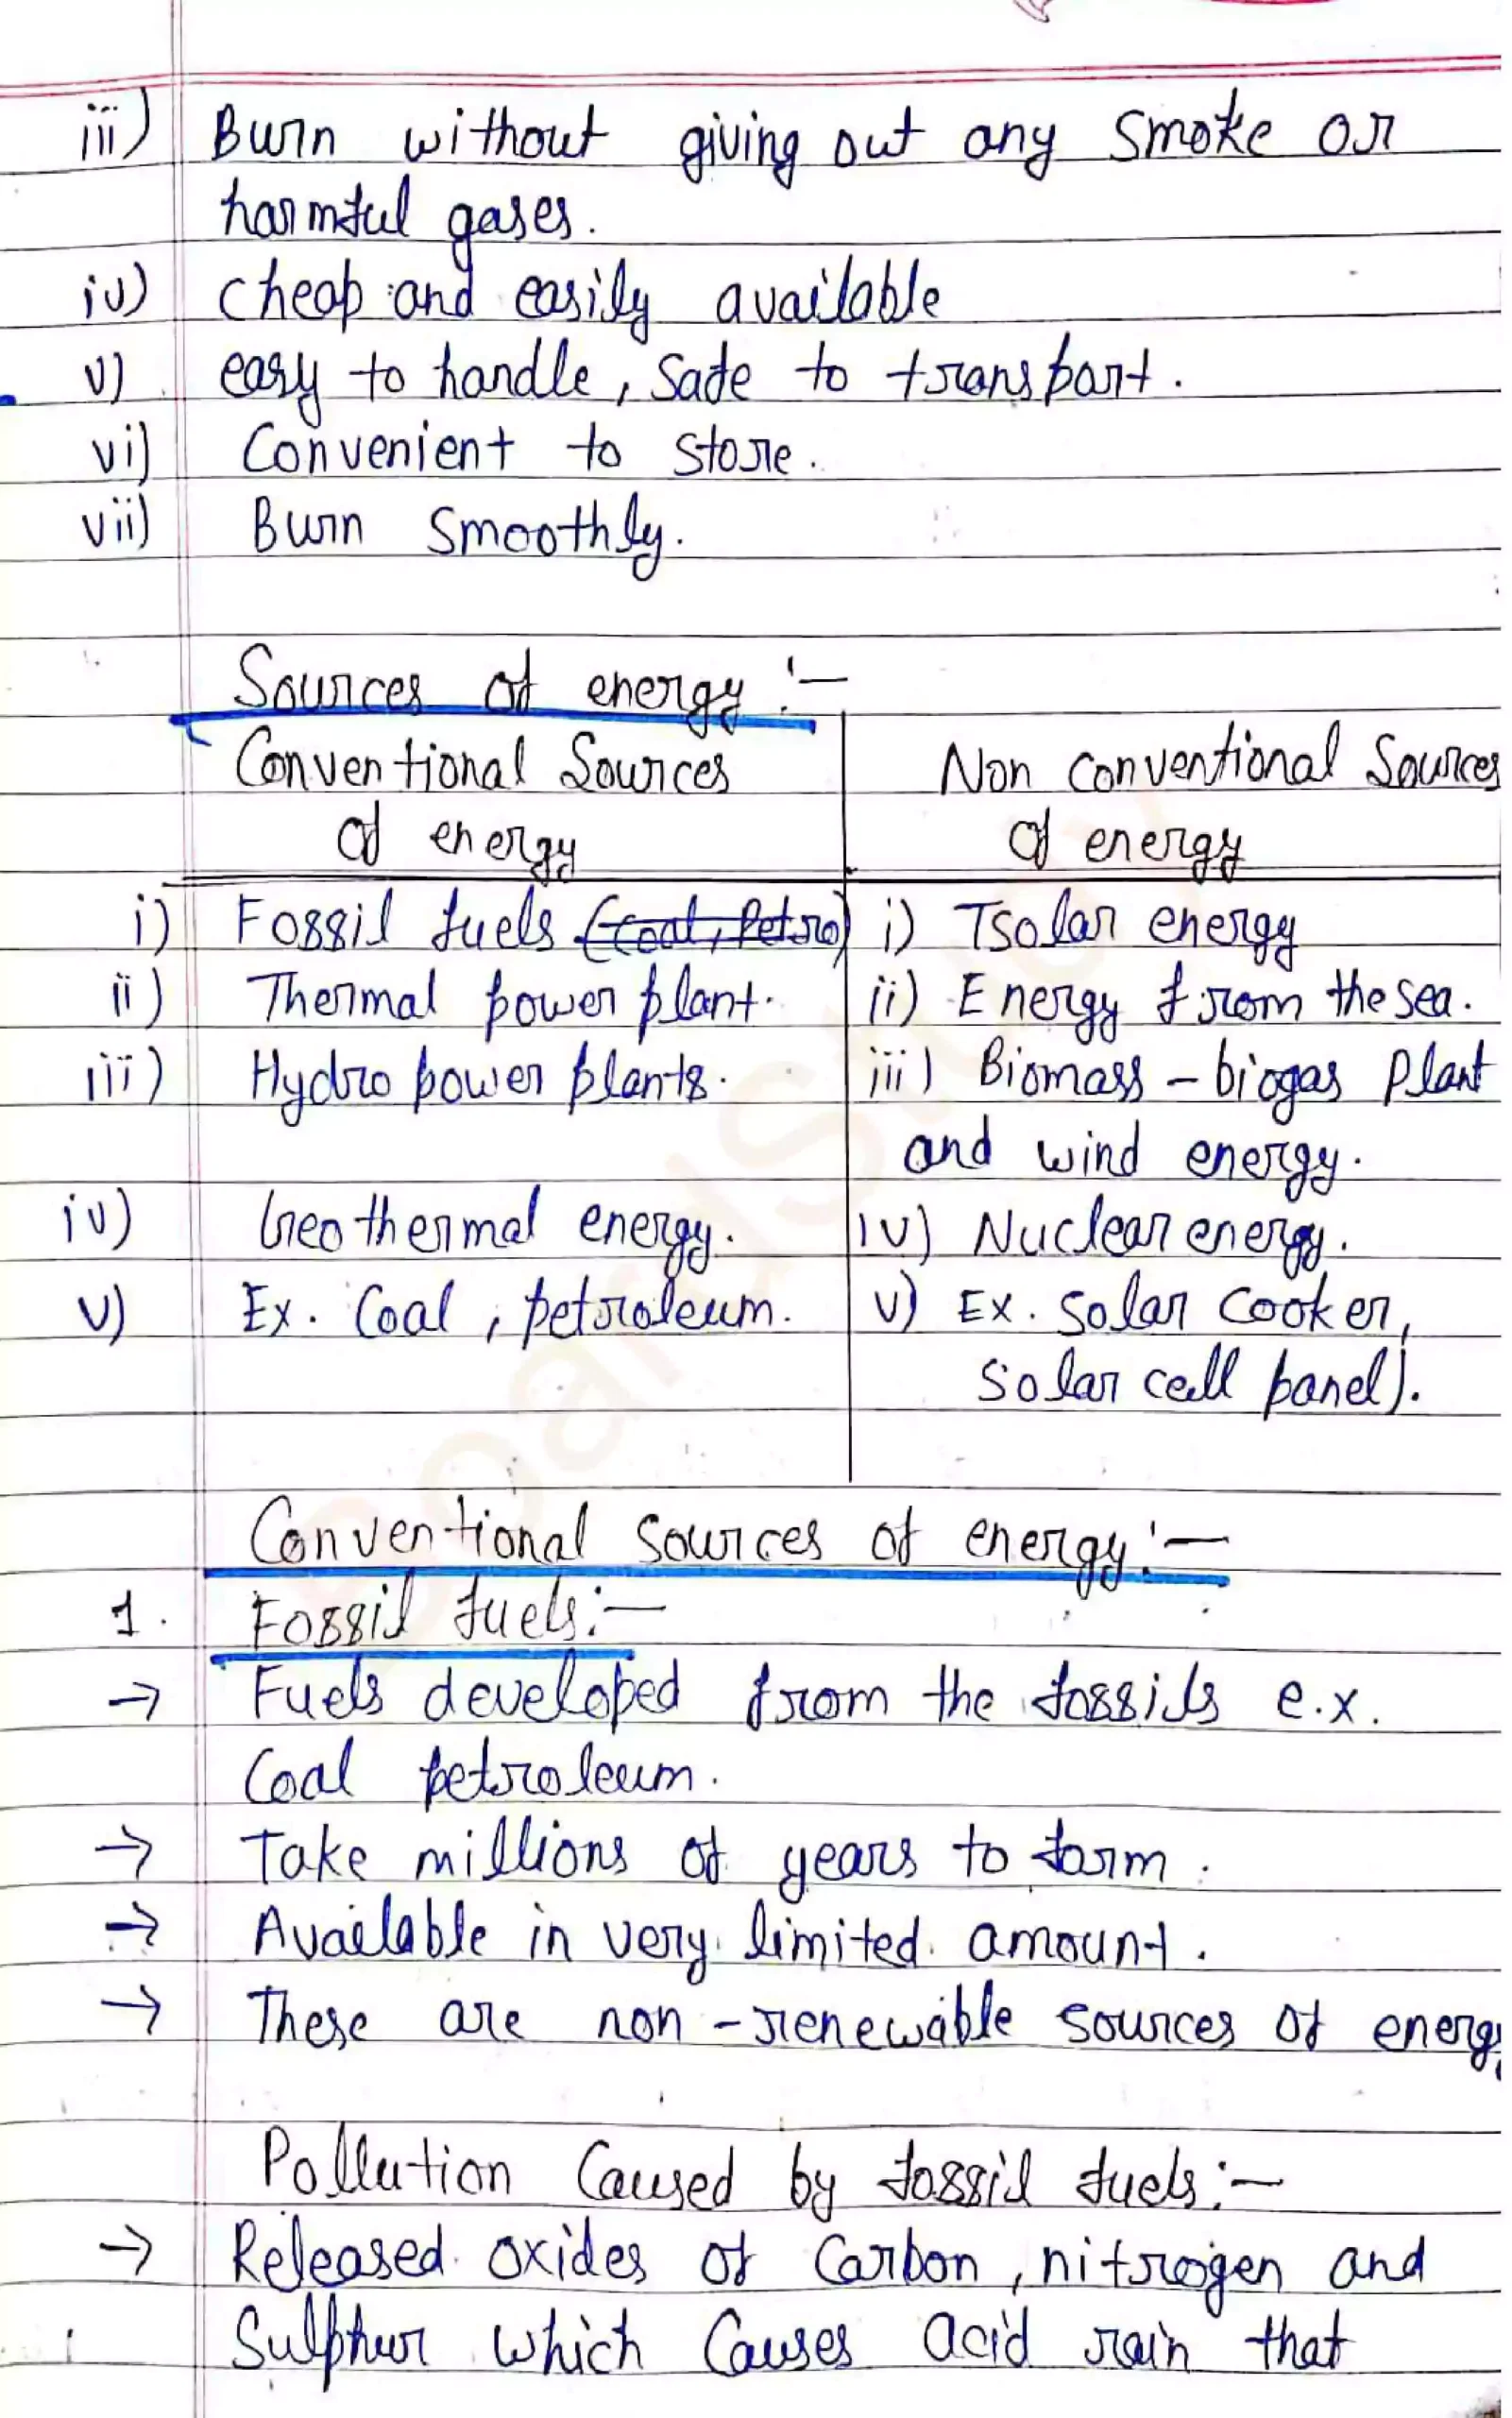 iii) Burn without giving out any smoke or
harmful gases.
iv) cheap and easily available
v) easy to handle, safe to transport.
vi) Convenient to store.
vii) Burn smoothly.
Sources of energy :-
Conventional Sources
of energy
Non conventional Sources
of energy
i) Fossil fuels (Coal, Petro)
ii) Thermal power plant.
iii) Hydro power plants.
iv) Geothermal energy.
v) Ex. Coal, petroleum.
i) Tsolar energy
ii) Energy from the sea.
iii) Biomass - biogas plant
and wind energy.
iv) Nuclear energy.
v) Ex. Solar cooker,
solar cell panel).
Conventional sources of energy :-
1. Fossil fuels :-
→ Fuels developed from the fossils e.x.
Coal petroleum.
→ Take millions of years to form.
→ Available in very limited amount.
→ These are non-renewable sources of energy
Pollution Caused by fossil fuels :-
→ Released oxides of Carbon, nitrogen and
Sulphur which Causes acid rain that
BoardStudy